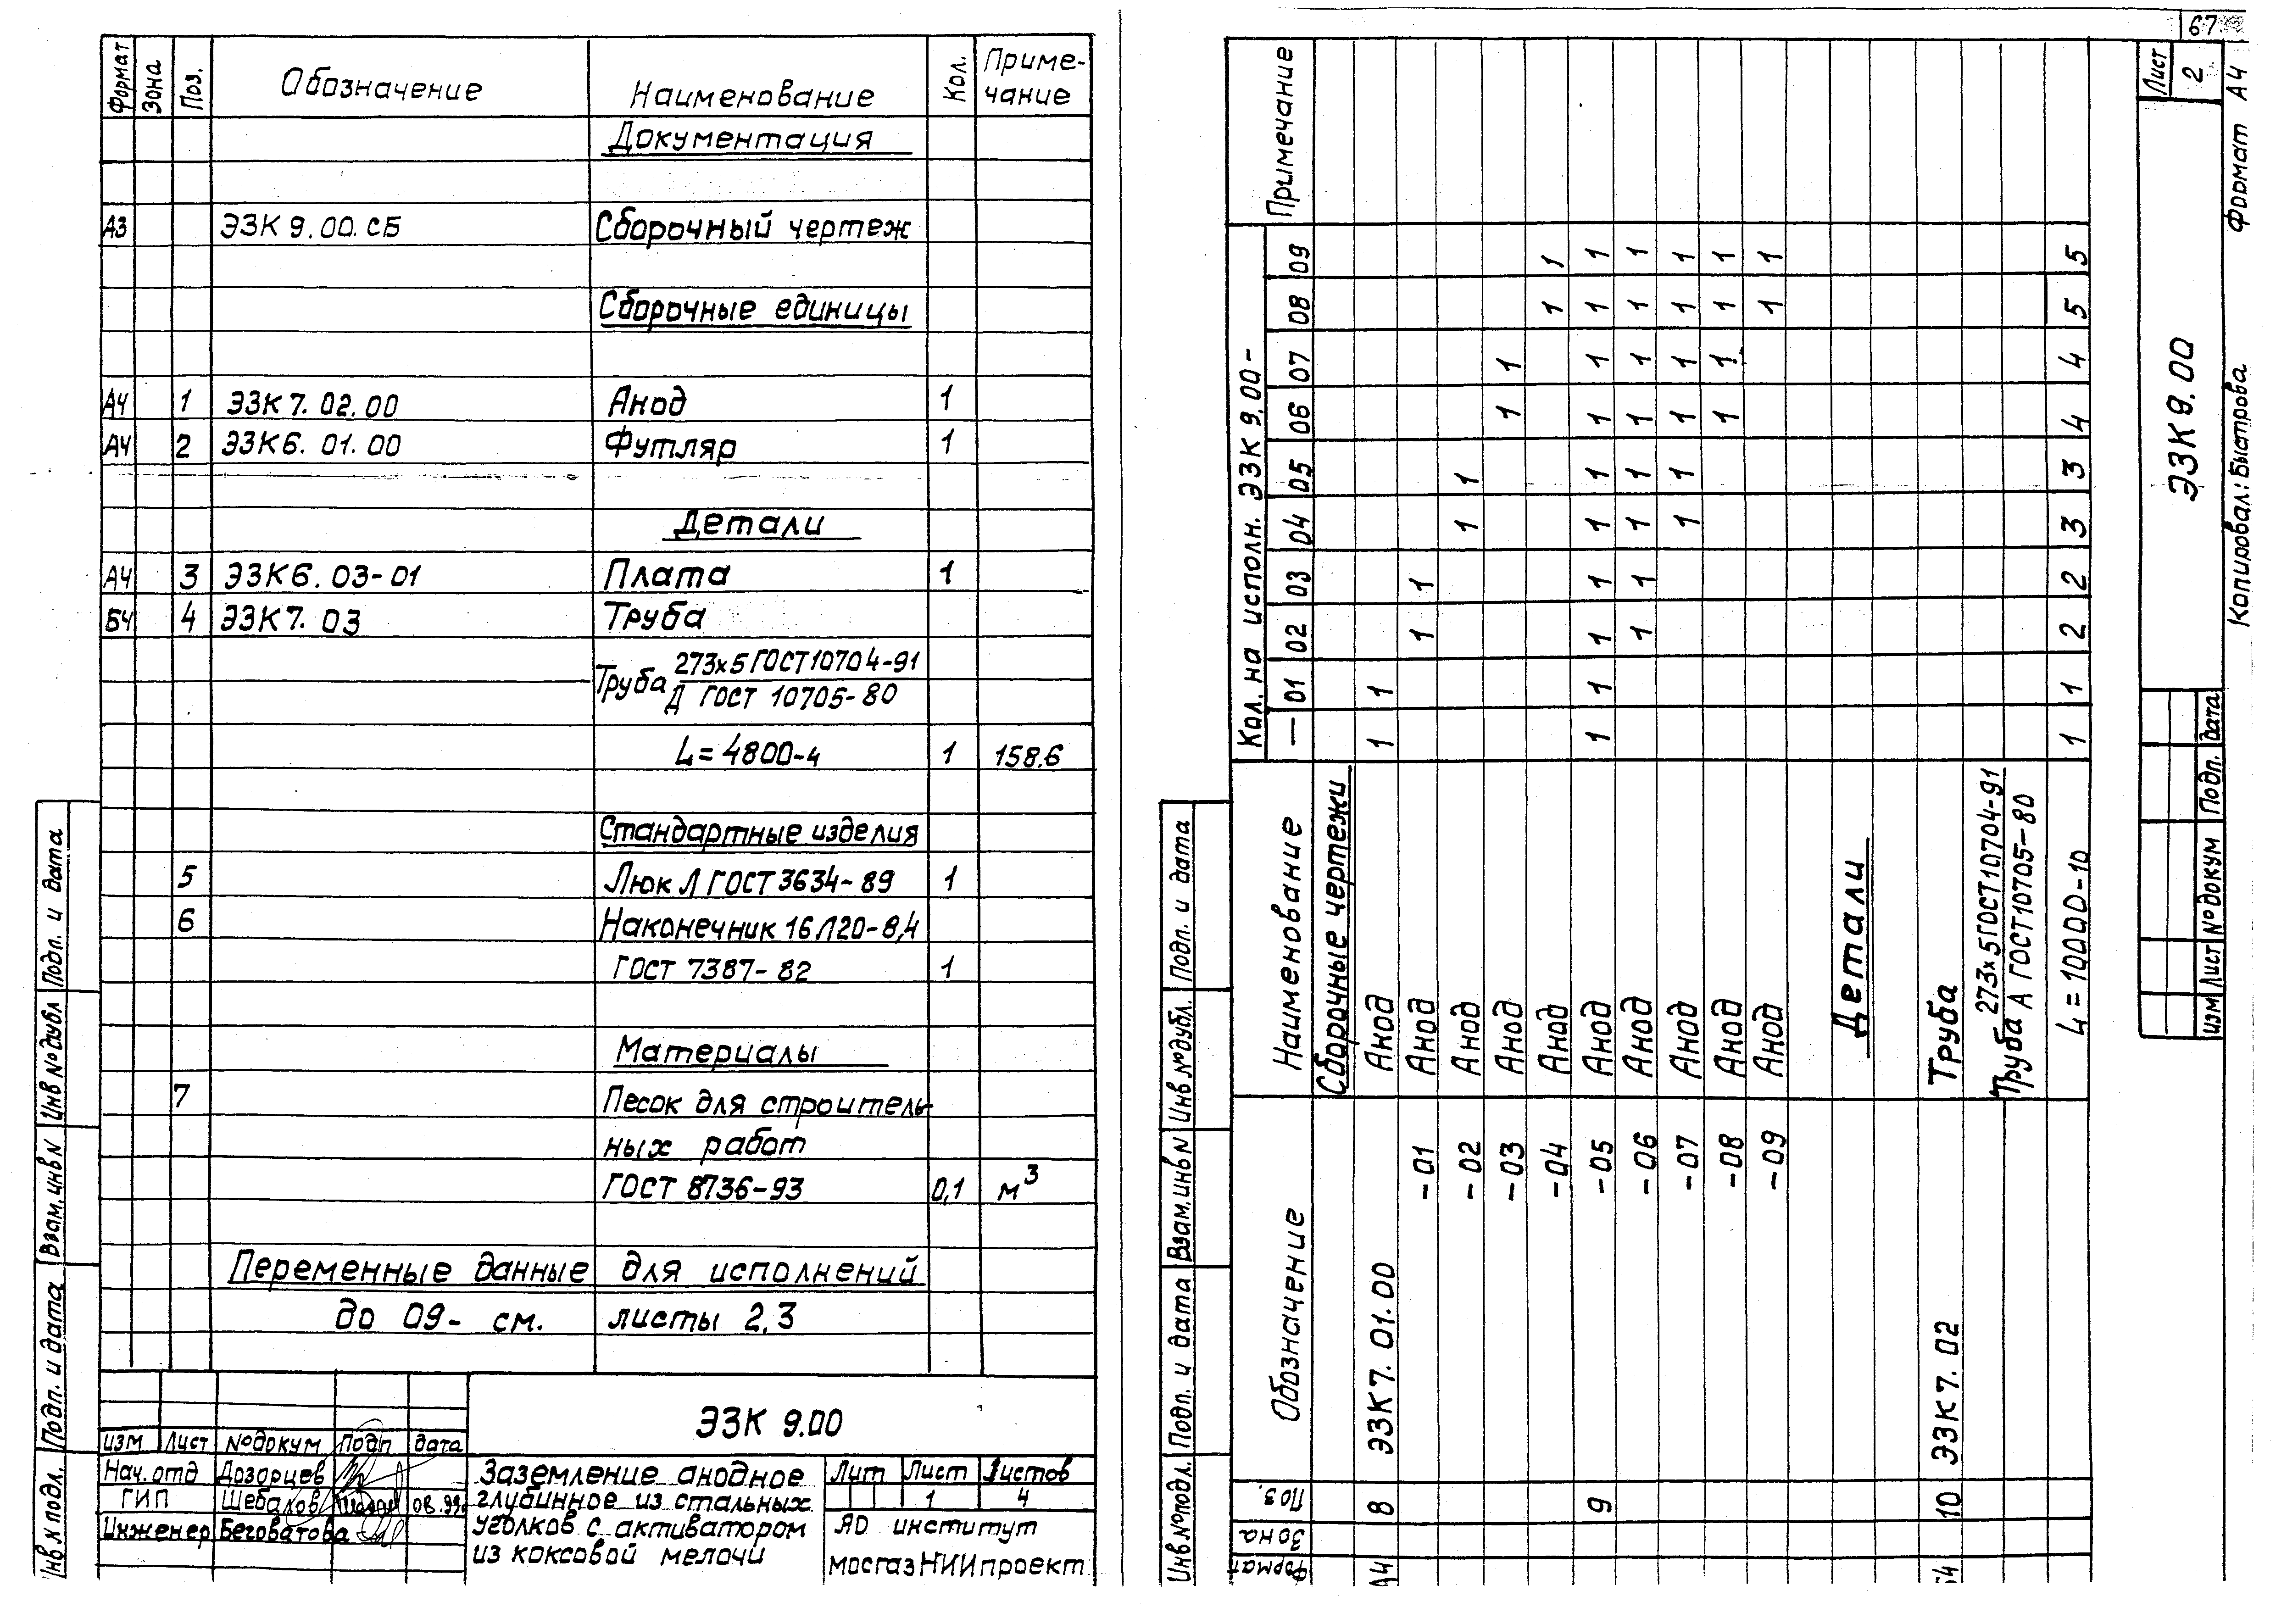 Формат Зона Поз. Обозначение Наименование Кол. Приме-
чание
Документация
А3 ЭЗК 9.00.СБ Сборочный чертеж
Сборочные единицы
А4 1 ЭЗК 7.02.00 Анод 1
А4 2 ЭЗК 6.01.00 Футляр 1
Детали
А4 3 ЭЗК 6.03-01 Плата 1
БЧ 4 ЭЗК 7.03 Труба
273х5 ГОСТ 10704-91
Труба Д ГОСТ 10705-80
L=4800-4 1 158.6
Стандартные изделия
5 Люк Л ГОСТ 3634-89 1
6 Наконечник 16Л20-8,4
ГОСТ 7387-82 1
Материалы
7 Песок для строитель-
ных работ
ГОСТ 8736-93 0,1 м³
Переменные данные для исполнений
до 09- см. листы 2,3
ЭЗК 9.00
изм Лист №докум Подп дата
Нач.отд Дозорцев
ГИП Шебалов 08.99
Инженер Беговатова
Заземление анодное
глубинное из стальных
уголков с активатором
из коксовой мелочи
Лит Лист Листов
1 4
ЯО институт
мосгазНИИпроект
Инв № подл. Подп. и дата Взам.инв N Инв №дубл Подп. и дата
67
Формат Зона Поз. Обозначение Наименование Кол. на исполн. ЭЗК 9.00- Примечание
— 01 02 03 04 05 06 07 08 09
Сборочные чертежи
А4 8 ЭЗК 7.01.00 Анод 1 1
-01 Анод 1 1
-02 Анод 1 1
-03 Анод 1 1
-04 Анод 1 1
9 -05 Анод 1 1 1 1 1 1 1 1 1 1
-06 Анод 1 1 1 1 1 1 1 1
-07 Анод 1 1 1 1 1 1
-08 Анод 1 1 1 1
-09 Анод 1 1
Детали
10 ЭЗК 7.02 Труба
273х5 ГОСТ 10704-91
Труба А ГОСТ 10705-80
L=10000-10 1 1 2 2 3 3 4 4 5 5
изм Лист №докум Подп. Дата
ЭЗК 9.00
Лист
2
Копировал: Быстрова Формат А4
Инв №подл. Подп. и дата Взам.инв N Инв №дубл. Подп. и дата